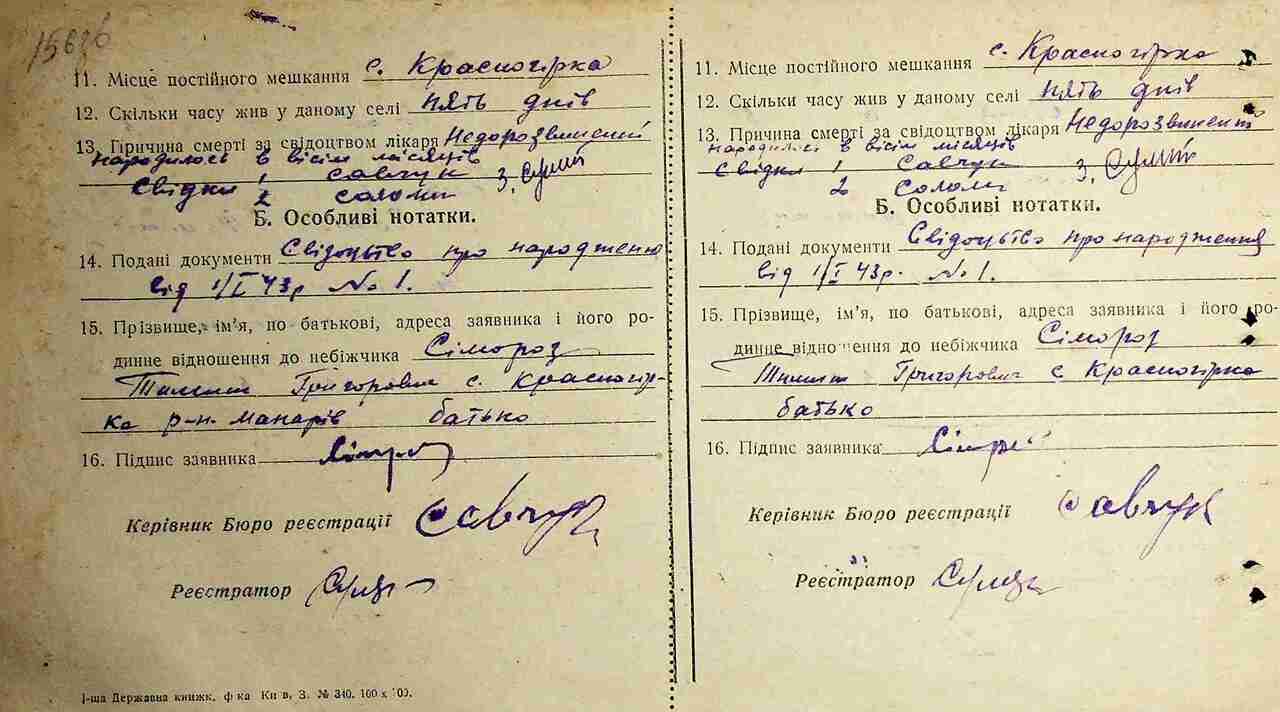 15626
11. Місце постійного мешкання с. Красногірка
12. Скільки часу жив у даному селі пять днів
13. Причина смерті за свідоцтвом лікаря Недорозвинений
народилось в вісім місяців
Свідки 1 Савчук 3.
2
Б. Особливі нотатки.
14. Подані документи Свідоцтво про народження
від 1/I 43р. No 1.
15. Прізвище, ім’я, по батькові, адреса заявника і його ро-
динне відношення до небіжчика Сімороз
Григорович с. Красногір-
ка р-н. Макарів батько
16. Підпис заявника
Керівник Бюро реєстрації Савчук
Реєстратор
1-ша Державна книжк. ф-ка Київ, З. № 340. 100 х 100.
11. Місце постійного мешкання с. Красногірка
12. Скільки часу жив у даному селі пять днів
13. Причина смерті за свідоцтвом лікаря Недорозвинений
народилось в вісім місяців
Свідки 1 Савчук 3.
2
Б. Особливі нотатки.
14. Подані документи Свідоцтво про народження
від 1/I 43р. No 1.
15. Прізвище, ім’я, по батькові, адреса заявника і його ро-
динне відношення до небіжчика Сімороз
Григорович с Красногірка
батько
16. Підпис заявника
Керівник Бюро реєстрації Савчук
Реєстратор